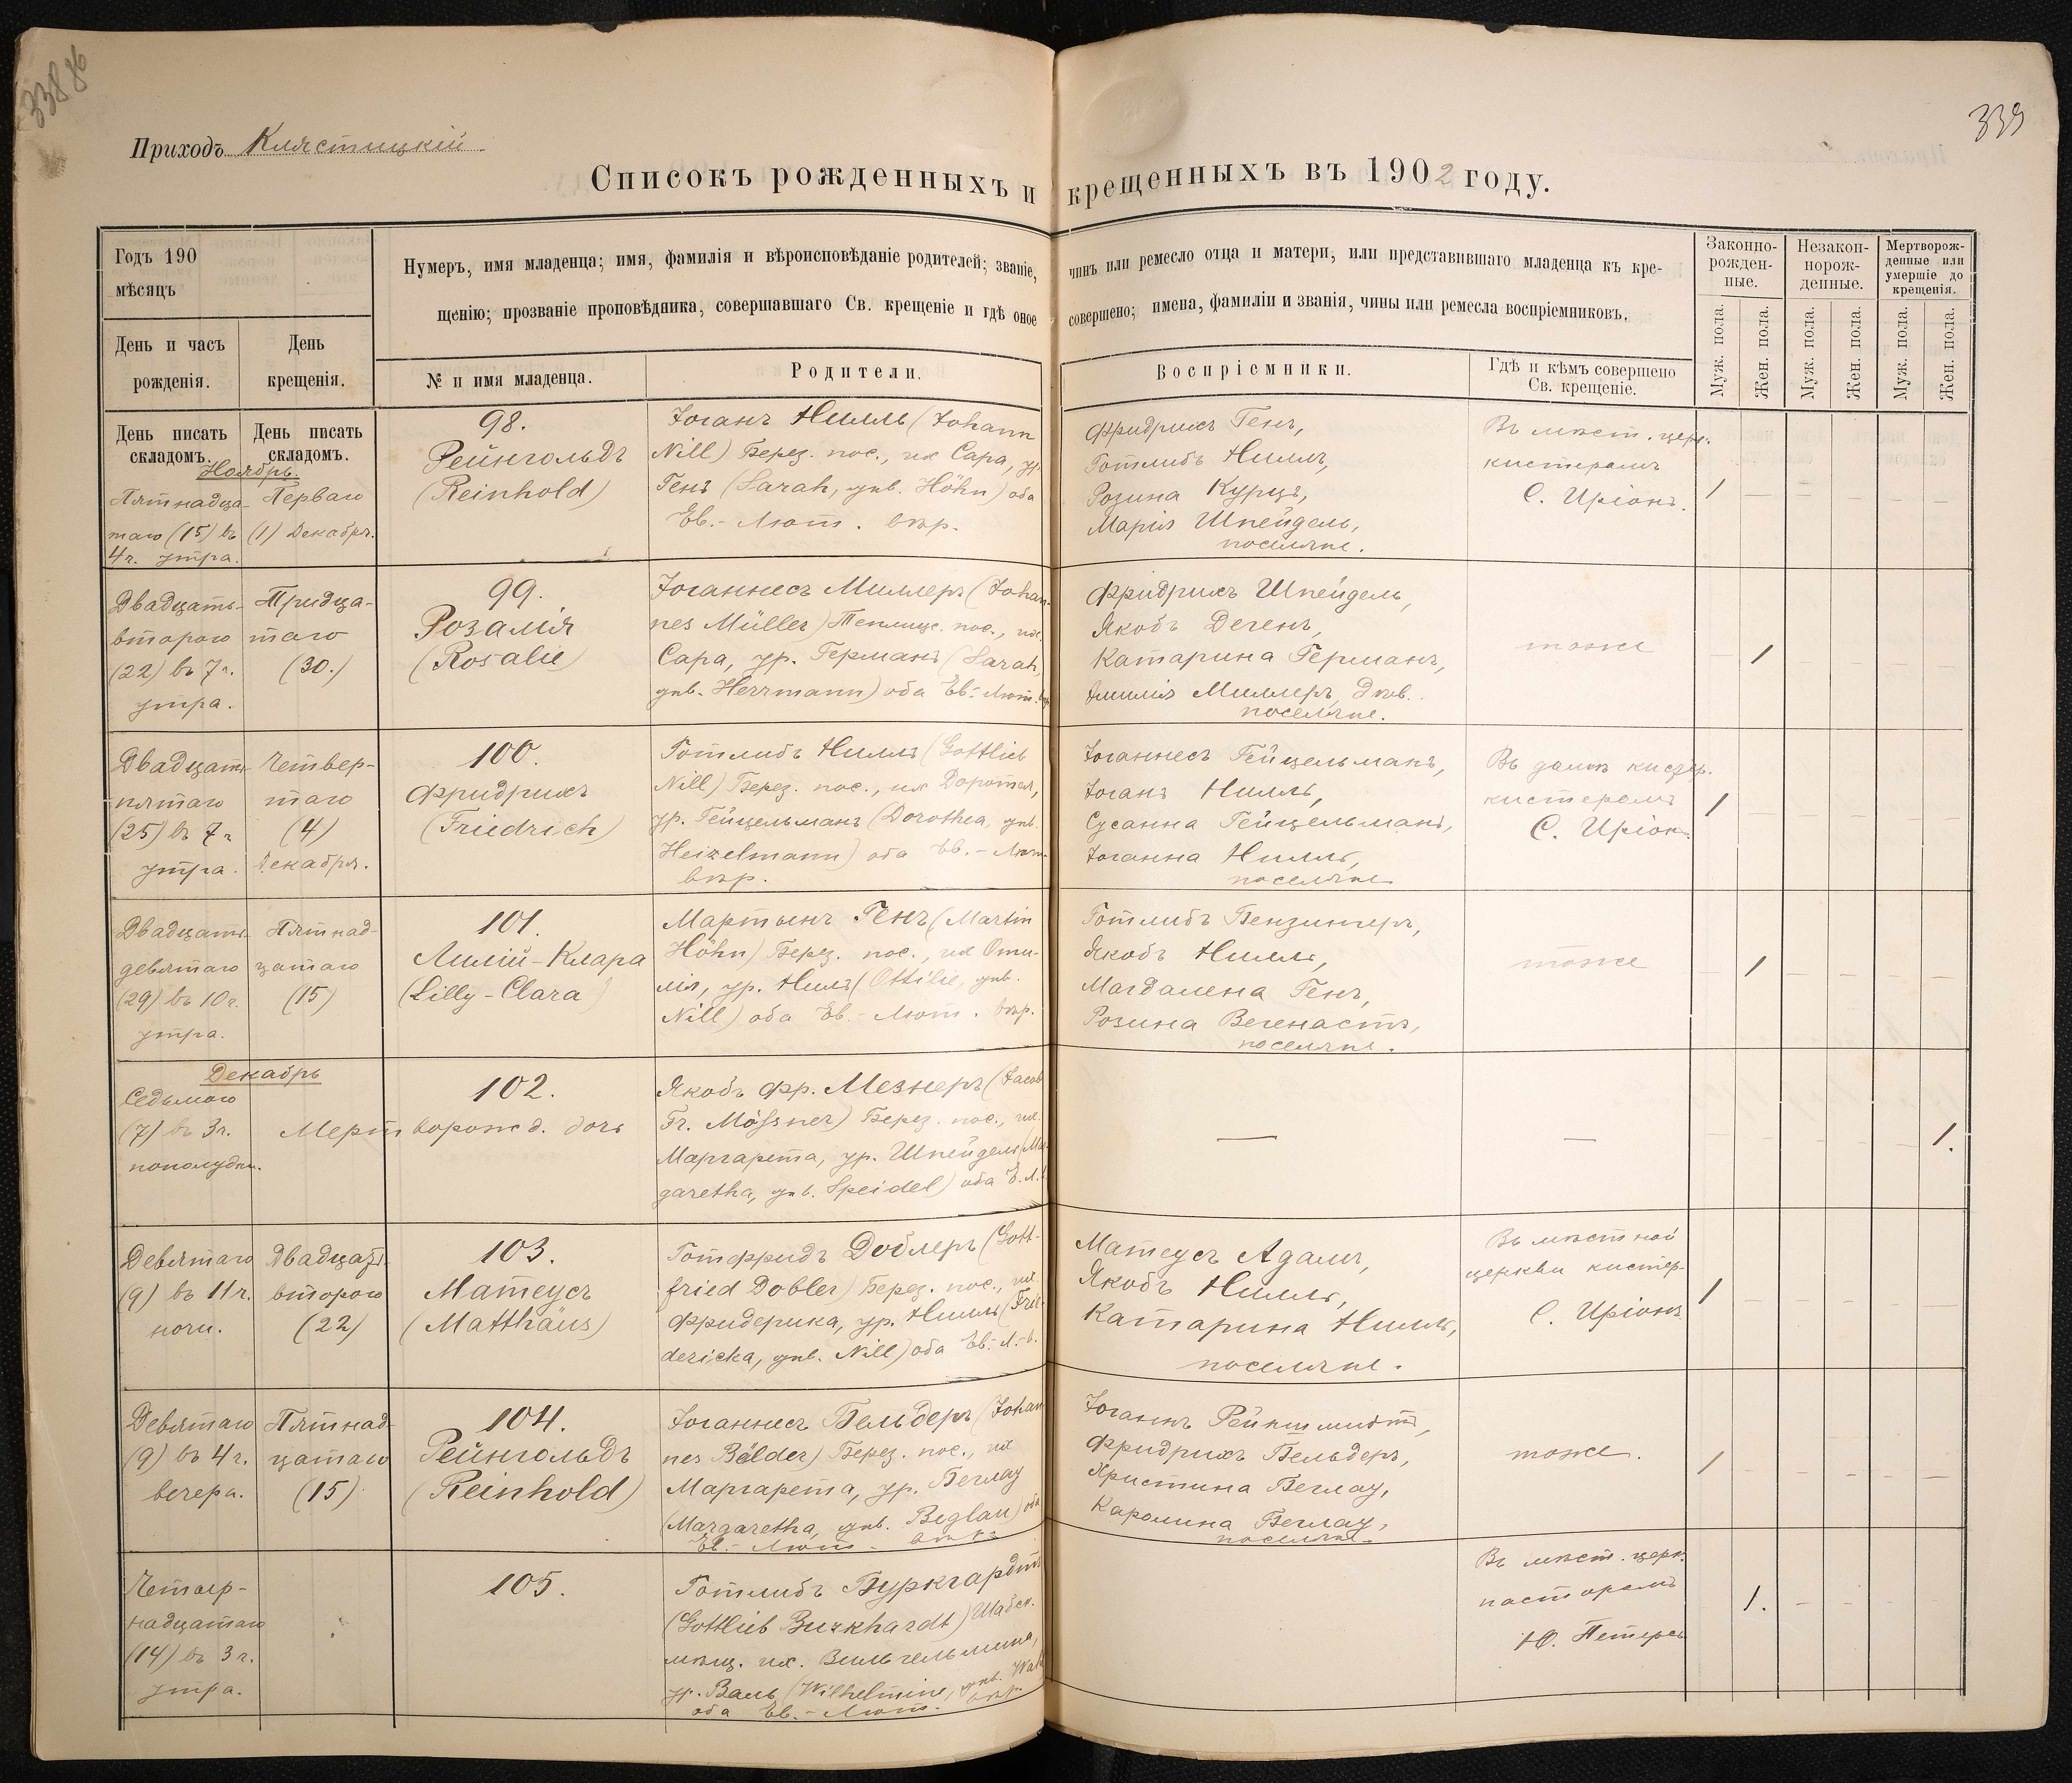 338 об
339
Приходъ Клястицкій
Списокъ рожденныхъ и крещенныхъ въ 1902 году.
Годъ 190
мѣсяцъ
День и часъ
рожденія.
День
крещенія.
Нумеръ, имя младенца; имя, фамилія и вѣроисповѣданіе родителей; званіе, чинъ или ремесло отца и матери, или представившаго младенца къ кре-
щенію; прозваніе проповѣдника, совершавшаго Св. крещеніе и гдѣ оное совершено; имена, фамиліи и званія, чины или ремесла воспріемниковъ.
№ и имя младенца.
Родители.
Воспріемники.
Гдѣ и кѣмъ совершено
Св. крещеніе.
Законно-
рожден-
ные.
Незакон-
норож-
денные.
Мертворож-
денные или
умершіе до
крещенія.
Муж. пола.
Жен. пола.
Муж. пола.
Жен. пола.
Муж. пола.
Жен. пола.
День писать
складомъ.
День писать
складомъ.
Ноябрь.
Пятнадца-
таго (15) въ
4 ч. утра.
Перваго
(1) Декабря.
98.
Рейнгольдъ
(Reinhold)
Іоганъ Нилль (Johann
Nill) Берез. пос., их Сара, ур.
Генъ (Sarah, ght. Höhn) оба
Ев.-Лют. вѣр.
Фридрихъ Генъ,
Готлибъ Нилль,
Розина Курцъ,
Марія Шпейдель,
поселяне.
Въ мѣст. церк.
кистеромъ
С. Иріонъ.
1 — — — — —
Двадцать-
второго
(22) въ 7 ч.
утра.
Тридца-
таго
(30.)
99.
Розалія
(Rosalie)
Іоганнесъ Миллеръ (Johan-
nes Müller) Теплиц. пос., их.
Сара, ур. Германъ (Sarah,
geb. Herrmann) оба Ев.-Лют. вѣр
Фридрихъ Шпейдель,
Якобъ Дегенъ,
Катарина Германъ,
Эмилія Миллеръ, дѣв.
поселяне.
тоже
— 1 — — — —
Двадцать-
пятаго
(25) въ 7 ч
утра.
Четвер-
таго
(4)
Декабря.
100.
Фридрихъ
(Friedrich)
Готлибъ Нилль (Gottlieb
Nill) Берез. пос., их Доротея,
ур. Гейцельманъ (Dorothea, geb.
Heizelmann) оба Ев.-Лют.
вѣр.
Іоганнесъ Гейцельманъ,
Іоганъ Нилль,
Сусанна Гейцельманъ,
Іоганна Нилль,
поселяне
Въ домѣ кистер.
кистеромъ
С. Иріон.
1 — — — — —
Двадцать-
девятаго
(29) въ 10 ч.
утра.
Пятнад-
цатаго
(15)
101.
Лилій-Клара
(Lilly-Clara)
Мартынъ Генъ (Martin
Höhn) Берез. пос., их Оти-
лія, ур. Нилль (Ottilie, geb.
Nill) оба Ев.-Лют. вѣр.
Готлибъ Бензингеръ,
Якобъ Нилль,
Магдалена Генъ,
Розина Вегенастъ,
поселяне.
тоже
1 — — — —
Декабрь
Седьмого
(7) въ 3 ч.
пополудни.
102.
Мертворожд. дочь
Якобъ Фр. Мезнеръ (Jacob
Fr. Mößner) Берез. пос., их.
Маргарета, ур. Шпейдель (Mar-
garetha, geb. Speidel) оба Е. Л.
— —
— — — — — 1.
Девятаго
(9) въ 11 ч.
ночи.
Двадцать-
второго
(22)
103.
Матеусъ
(Matthäus)
Готфридъ Доблеръ (Gott-
fried Dobler) Берез. пос., их.
Фридерика, ур. Нилль (Frie-
dericka, geb. Nill) оба Ев.-Л.-в.
Матеусъ Адамъ,
Якобъ Нилль,
Катарина Нилль,
поселяне.
Въ мѣстной
церкви кистер.
С. Иріонъ
1 — — — — —
Девятаго
(9) въ 4 ч.
вечера.
Пятнад-
цатаго
(15)
104.
Рейнгольдъ
(Reinhold)
Іоганнесъ Бельдеръ (Johan-
nes Bälder) Берез. пос., их
Маргарета, ур. Беглау
(Margaretha, geb. Beglau) оба
Ев.-Лют. вѣр.
Іоганъ Рейншмидтъ,
Фридрихъ Бельдеръ,
Христина Беглау,
Каролина Беглау,
поселяне.
тоже.
1 — — — — —
Четыр-
надцатаго
(14) въ 3 ч.
утра.
105.
Готлибъ Буркгардтъ
(Gottlieb Burkhardt) Шабск.
мѣщ. их. Вильгельмина,
ур. Валь (Wilhelmine, geb. Wahl
оба Ев.-Лют. вѣр.
Въ мѣст. церк.
пасторомъ
Ю. Петерсъ
1. — — — —